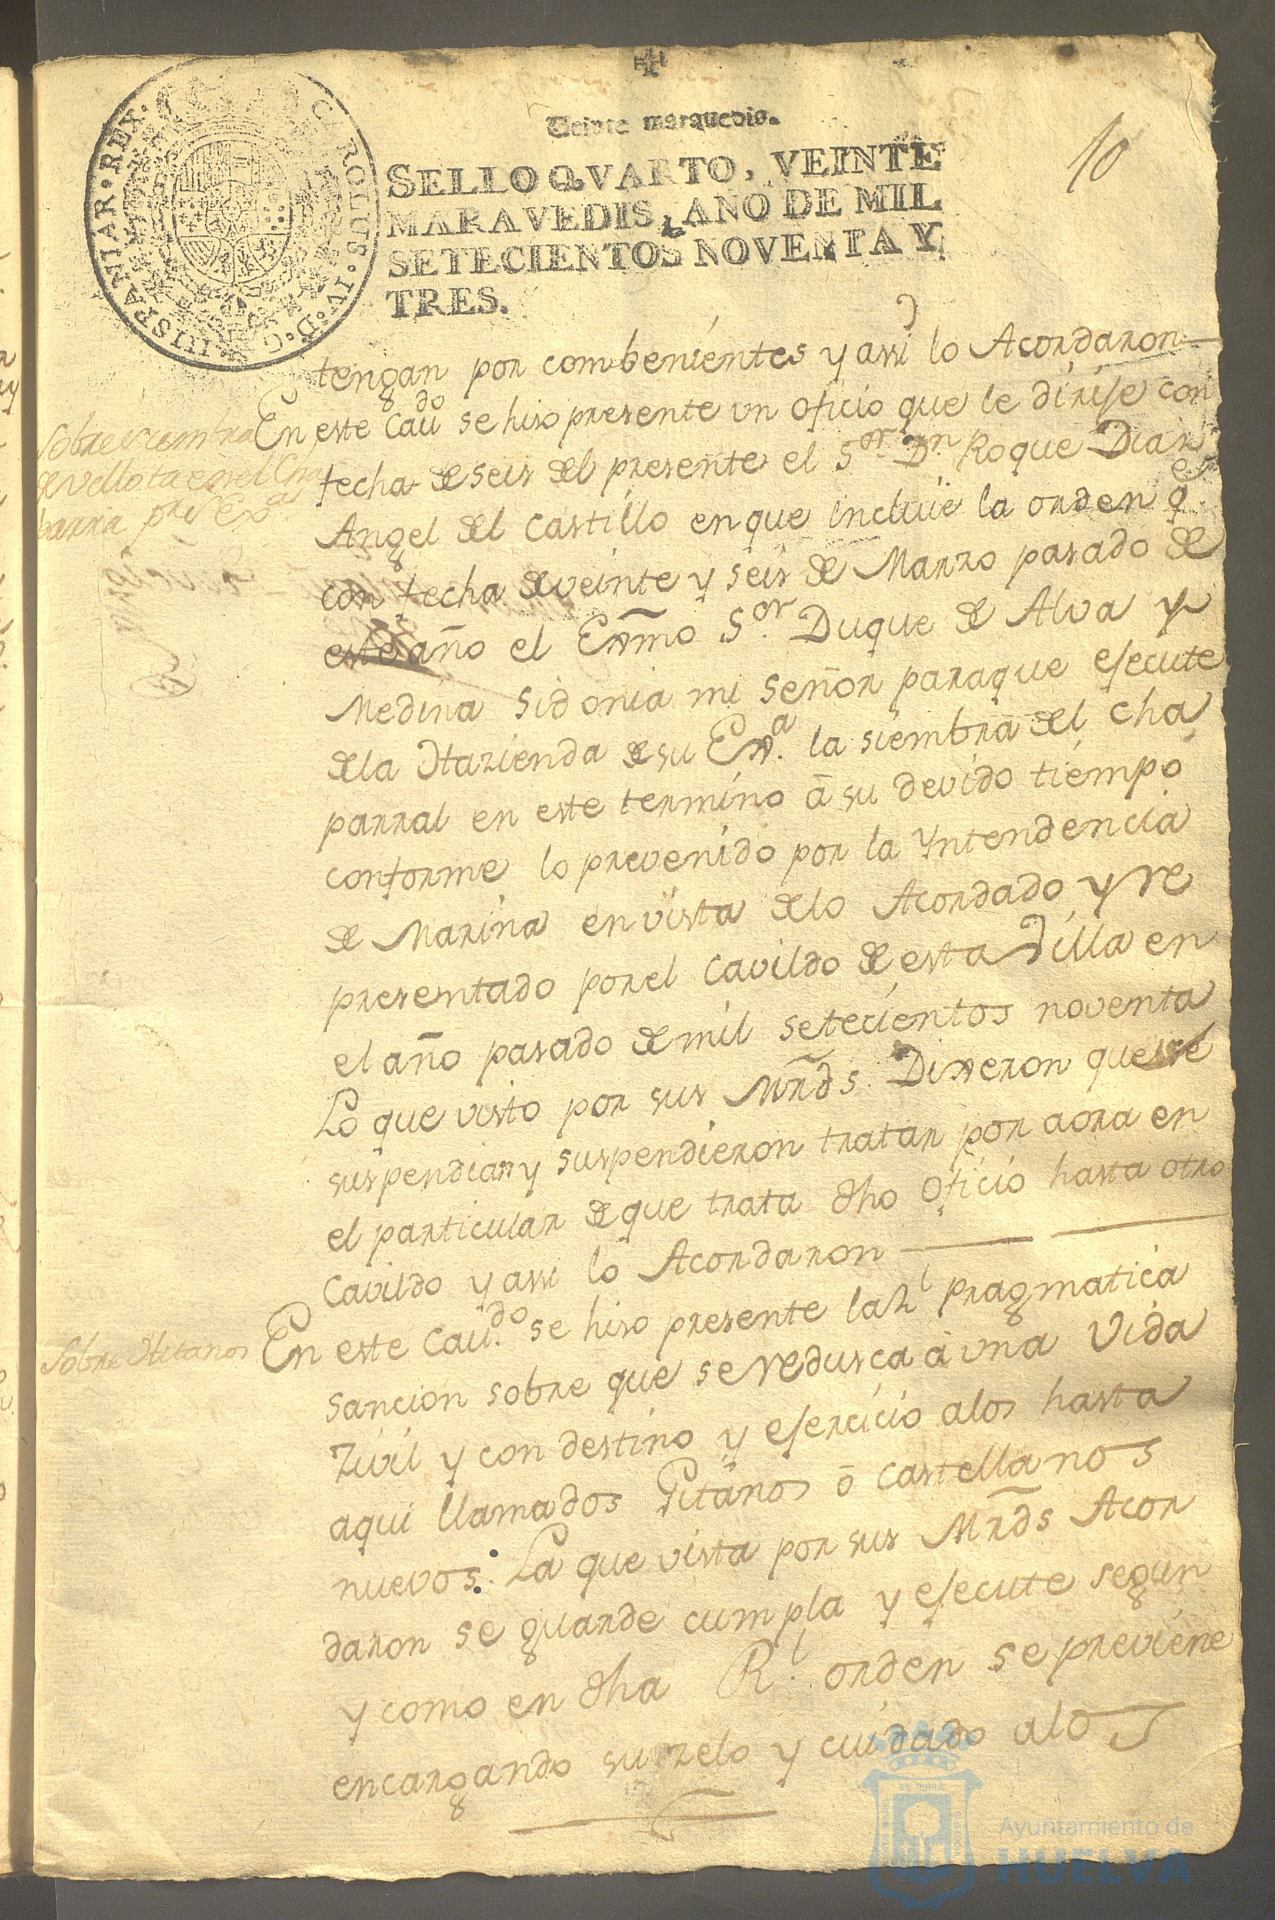 Veinte marauedis.
SELLO QVARTO, VEINTE
MARAVEDIS, AÑO DE MIL
SETECIENTOS NOVENTA Y
TRES.
CAROLUS·IV·D·G·HISPANIAR·REX·
10
tengan por combenientes y assi lo Acordaron
Sobre siembra
de vellota en el Cha
parral pr. su Exa
En este Caudo se hiso presente vn oficio que le dirije con
fecha de seis del presente el Sor. Dn. Roque Dias
Angel del Castillo en que incluie la orden qe
con fecha de veinte y seis de Marzo pasado de
este año el Exmo Sor. Duque de Alva y
Medina Sidonia mi señor para que ejecute
de la Hazienda de su Exa. la siembra del Cha
parral en este termino â su devido tiempo
conforme lo prevenido por la Yntendencia
de Marina en vista de lo Acordado y re
presentado por el Cavildo de esta Villa en
el año pasado de mil setecientos noventa
Lo que visto por sus Mrds. Dixeron que se
suspendian y suspendieron tratar por aora en
el particular de que trata dho oficio hasta otro
Cavildo y assi lo Acordaron
Sobre Gitanos
En este Caudo. se hiso presente la Rl pragmatica
sancion sobre que se redusca à una Vida
Zivil y con destino y ejercicio a los hasta
aqui llamados Gitanos ô castellanos
nuevos: La que vista por sus Mrds Acor
daron se guarde cumpla y ejecute segun
y como en dha Rl. orden se previene
encargando su zelo y cuidado a los
Ayuntamiento de
HUELVA